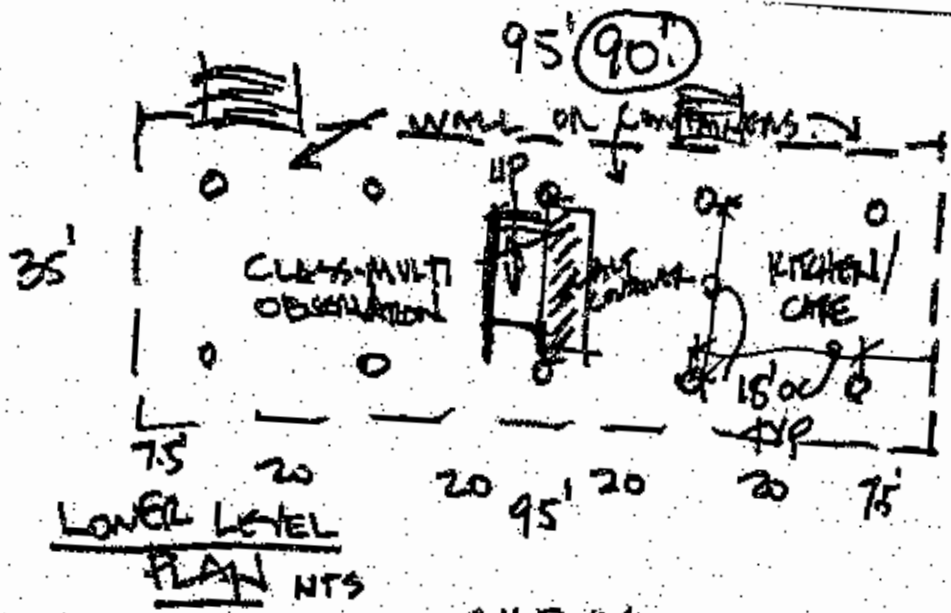 95' 90'
WALL OR CONTAINERS
UP
35'
CLASS-MULTI
OBSERVATION
KITCHEN/
CAFE
18' OC
TYP
7.5'
20
20
20
20
7.5'
95'
LOWER LEVEL
PLAN NTS